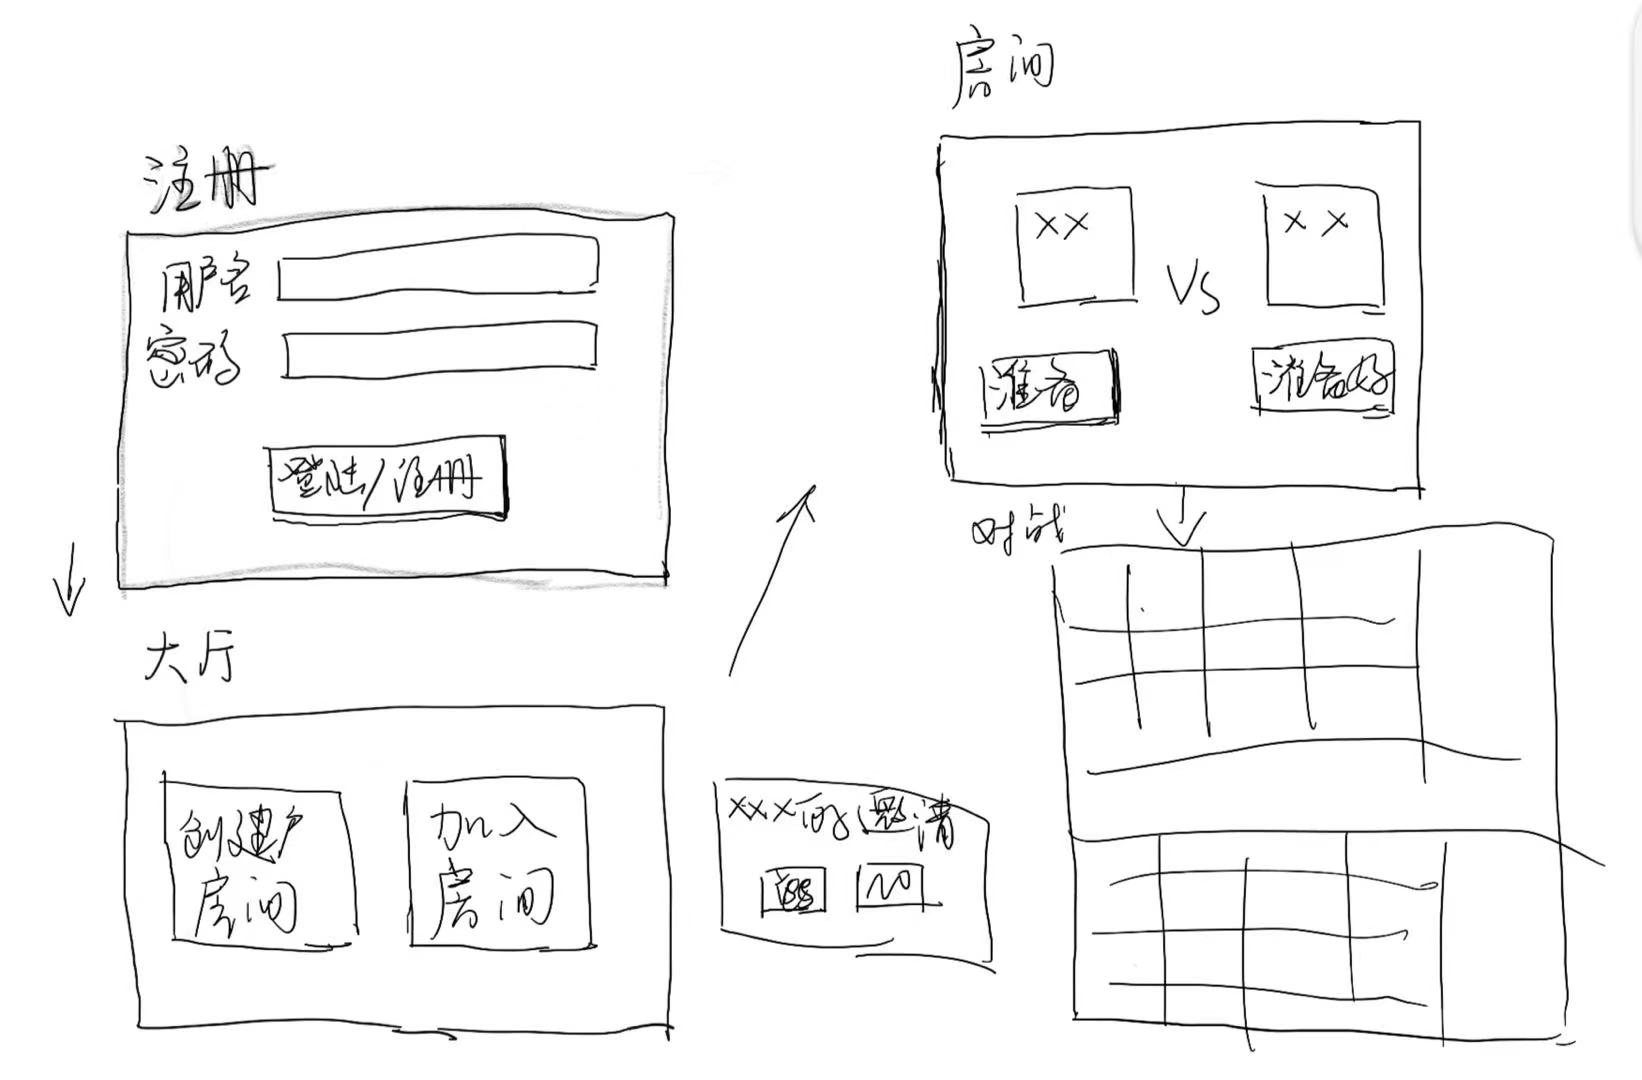 注册
用户名
密码
登陆/注册
大厅
创建
房间
加入
房间
xxx的邀请
yes
no
房间
xx
xx
Vs
准备
准备好
对战